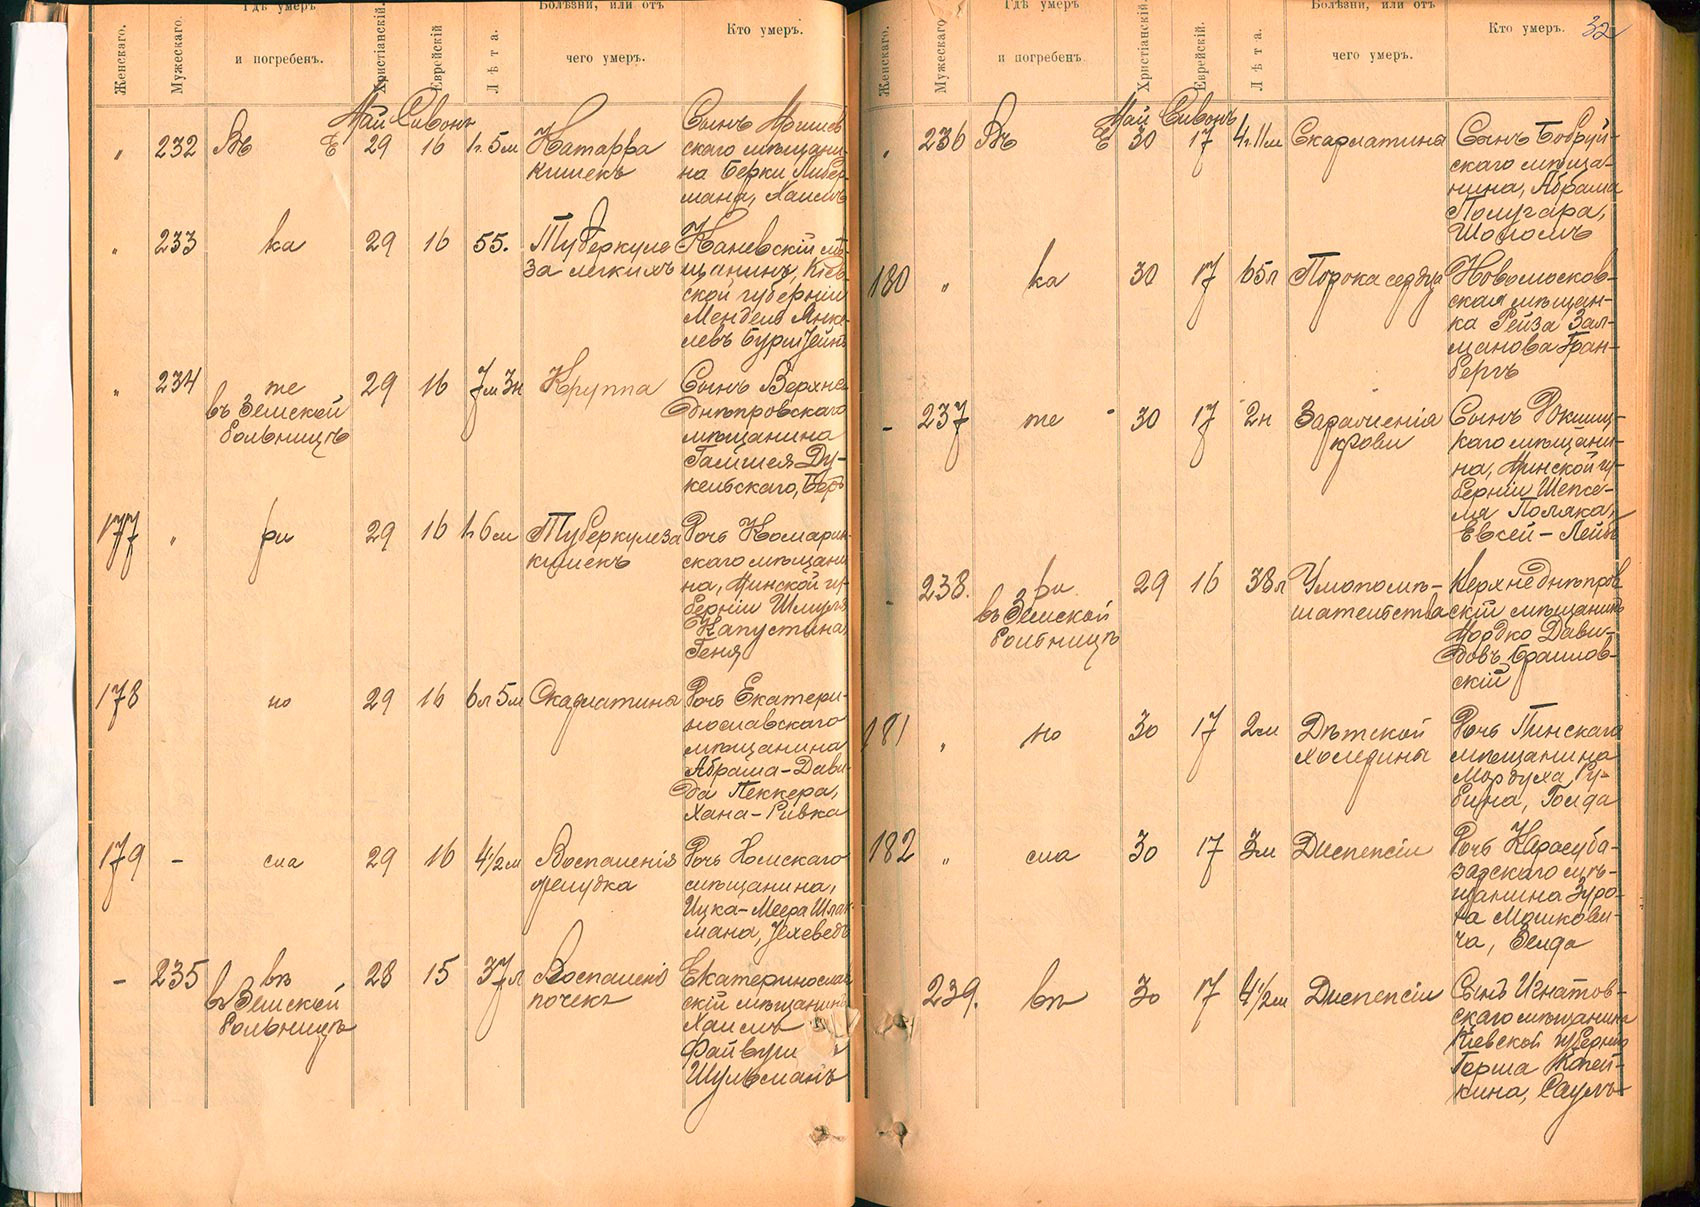 Женскаго.
Мужескаго.
Гдѣ умеръ
и погребенъ.
Христіанскій.
Еврейскій
Лѣта.
Болѣзни, или отъ
чего умеръ.
Кто умеръ.
Май Сивонъ
" 232 Въ Е 29 16 1г.5м Катарра
кишекъ
Сынъ Могилев
скаго мѣщани-
на Берки Либер-
мана, Хаимъ
" 233 ка 29 16 55. Туберкуле
за легкихъ
Каневскій мѣ-
щанинъ, Кіев
ской губерніи
Мендель Янке-
левъ
" 234 те 29 16 7м 3н Круппа
въ Земской
больницѣ
Сынъ Верхне
днѣпровскаго
мѣщанина
Ду-
кельскаго, Беръ
177 " ри 29 16 1г 6м Туберкулеза
кишекъ
Дочь Комарин-
скаго мѣщани
на, Минской гу-
берніи Шмуля
Капустина,
Геня
178 но 29 16 6л 5м Скарлатина
Дочь Екатери-
нославскаго
мѣщанина
Абрама-Дави-
да Пеккера,
Хана-Ривка
179 - сла 29 16 4 1/2 м Воспаленія
желудка
Дочь Хомскаго
мѣщанина,
Ицка-Меера Шлак
мана, Јехеведъ
- 235 въ 28 15 37л Воспаленіе
почекъ
въ Земской
больницѣ
Екатеринослав
скій мѣщанинъ
Хаимъ
Файвуш
Шульманъ
Женскаго.
Мужескаго
Гдѣ умеръ
и погребенъ
Христіанскій.
Еврейскій.
Лѣта.
Болѣзни, или отъ
чего умеръ.
Кто умеръ.
32
Май Сивонъ
" 236 Въ Е 30 17 4г.11м Скарлатина
Сынъ Бобруй-
скаго мѣща-
нина, Абрама
Полугара,
Шоломъ
180 " ка 30 17 65л Порока сердца
Новомосков-
ская мѣщан-
ка Рейза Зал-
манова Гран-
бергъ
- 237 те 30 17 2н Зараженія
крови
Сынъ
каго мѣщани-
на, Минской гу-
берніи Шепсе-
ля Поляка,
Евсей-Лейб
- 238. ри 29 16 38л Умопомѣ-
шательства
въ Земской
больницѣ
Верхнеднѣпров
скій мѣщанинъ
Мордко Дави-
довъ Браилов-
скій
181 " но 30 17 2м Дѣтской
холерина
Дочь Пинскаго
мѣщанина
Мордуха Ру-
бина, Голда
182 " сла 30 17 3м Диспепсіи
Дочь Карасуба-
зарскаго мѣ-
щанина
Мошкови-
ча, Зелда
239. въ 30 17 4 1/2 м Диспепсіи
Сынъ Игнатов-
скаго мѣщанина
Кіевской губерніи
Герша Копей-
кина, Саулъ